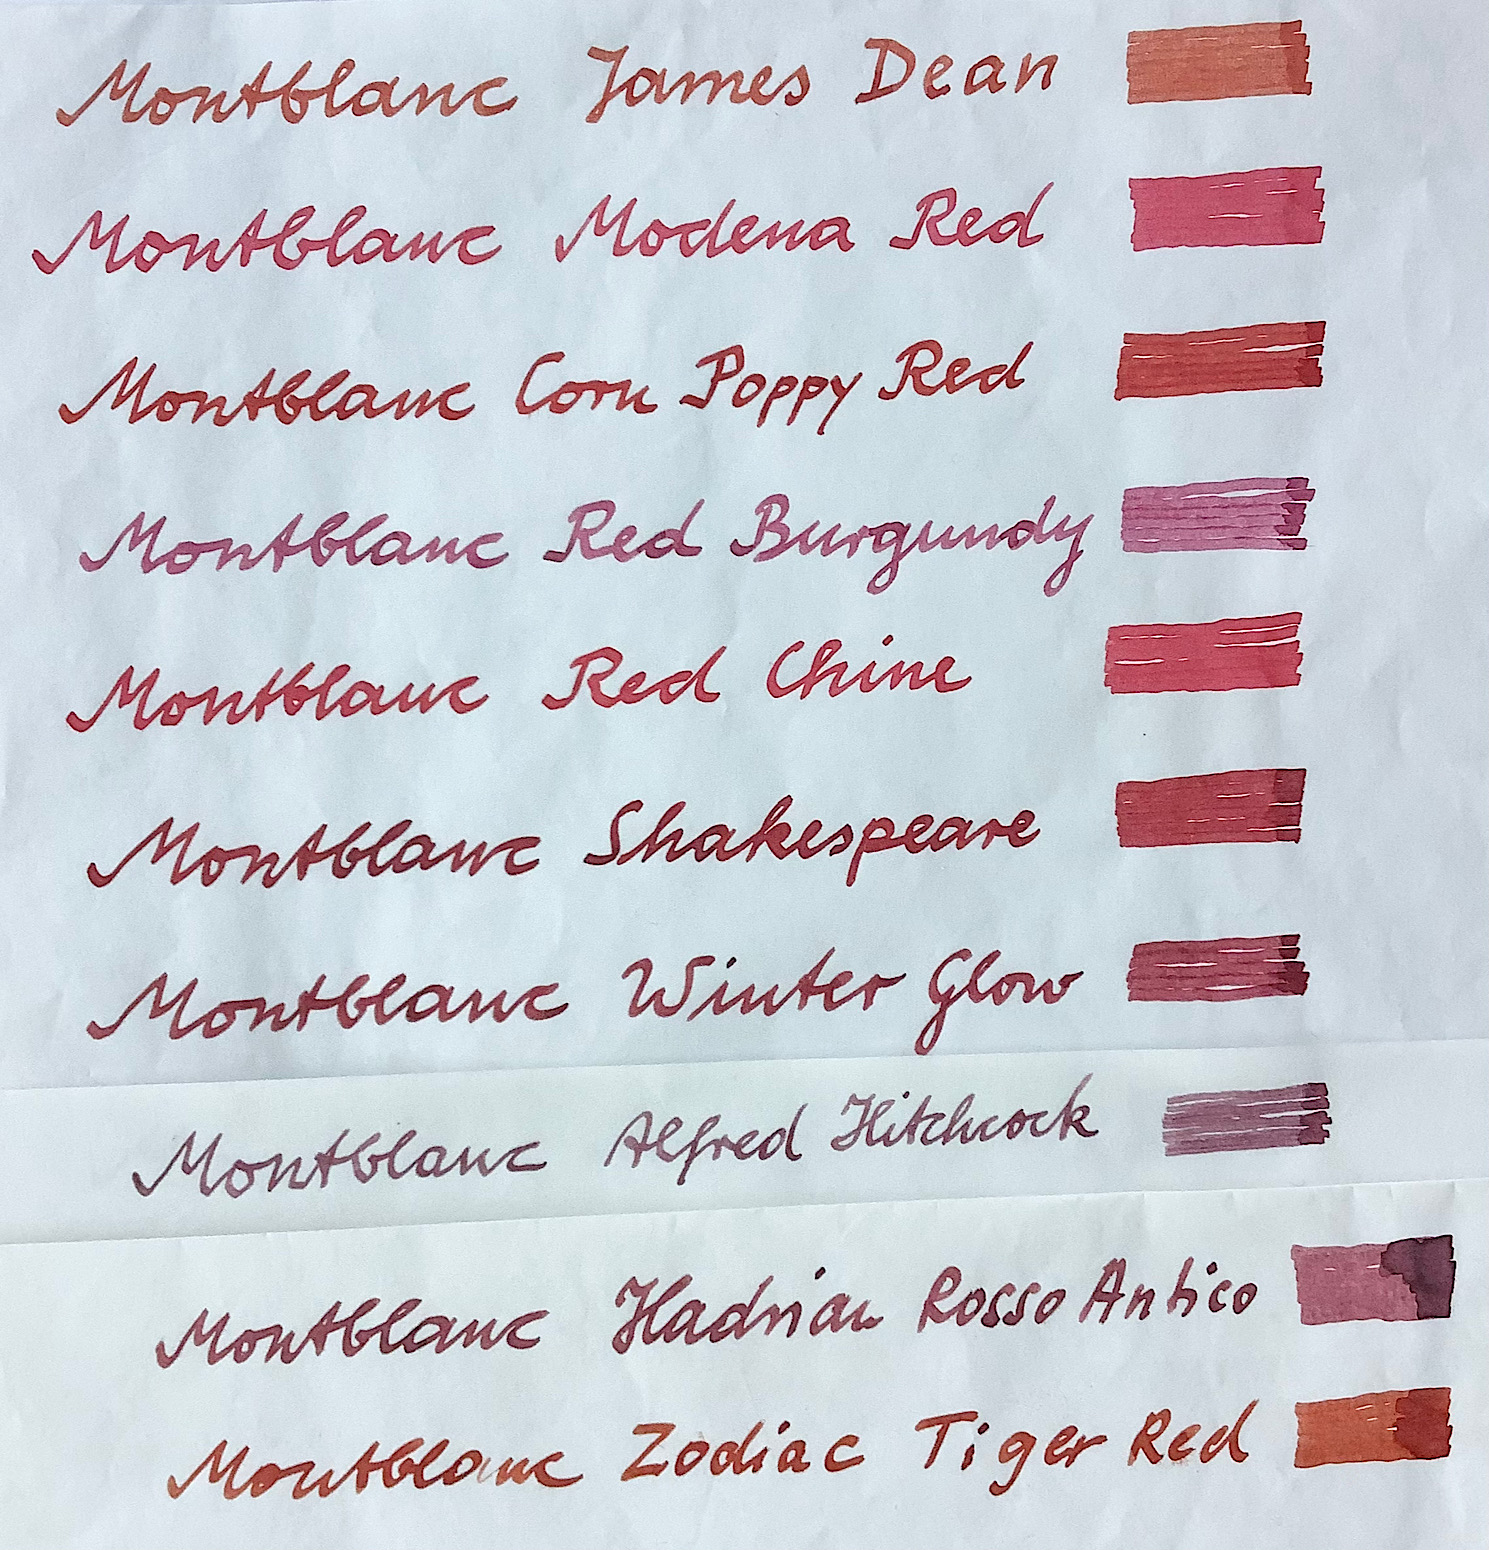 Montblanc James Dean
Montblanc Modena Red
Montblanc Corn Poppy Red
Montblanc Red Burgundy
Montblanc Red Chine
Montblanc Shakespeare
Montblanc Winter Glow
Montblanc Alfred Hitchcock
Montblanc Hadrian Rosso Antico
Montblanc Zodiac Tiger Red